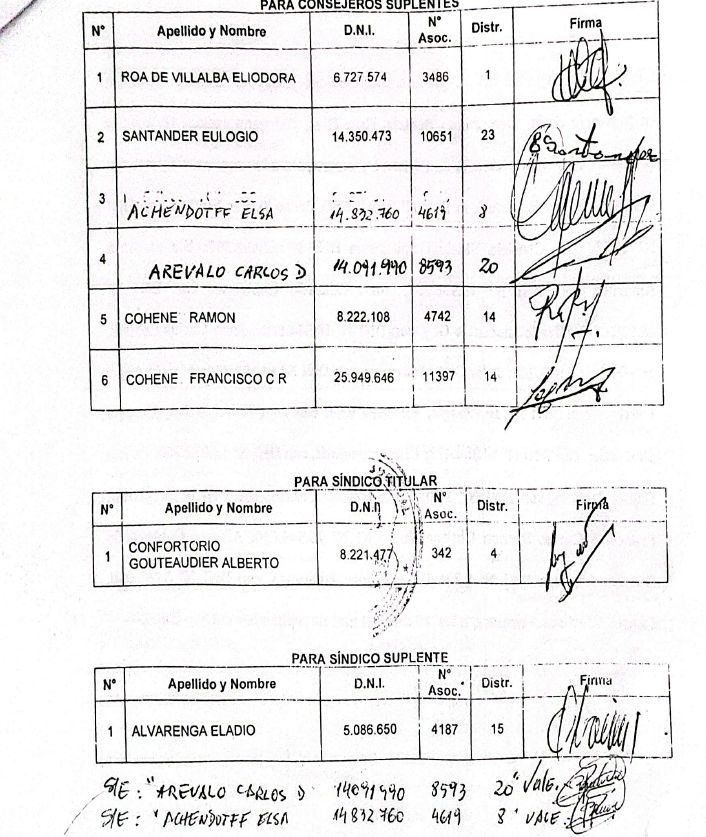 PARA CONSEJEROS SUPLENTES
N° Apellido y Nombre D.N.I. N° Asoc. Distr. Firma
1 ROA DE VILLALBA ELIODORA 6.727.574 3486 1
2 SANTANDER EULOGIO 14.350.473 10651 23
3 ACHENDOTFF ELSA 14.832.760 4619 8
4 AREVALO CARLOS D 14.091.990 8593 20
5 COHENE RAMON 8.222.108 4742 14
6 COHENE FRANCISCO C R 25.949.646 11397 14
PARA SÍNDICO TITULAR
N° Apellido y Nombre D.N.I N° Asoc. Distr. Firma
1 CONFORTORIO GOUTEAUDIER ALBERTO 8.221.477 342 4
PARA SÍNDICO SUPLENTE
N° Apellido y Nombre D.N.I. N° Asoc. Distr. Firma
1 ALVARENGA ELADIO 5.086.650 4187 15
S/E: "AREVALO CARLOS D 14091990 8593 20" VALE.
S/E: "ACHENDOTFF ELSA 14832760 4619 8" VALE: